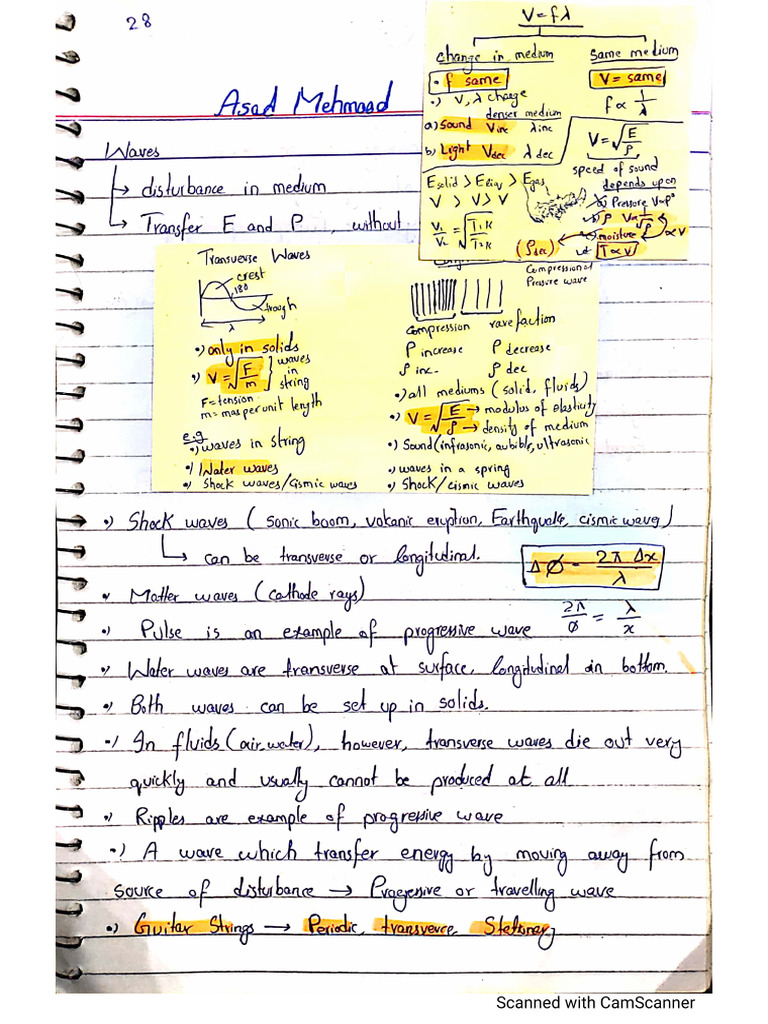 28
Asad Mehmood
Waves
↳ disturbance in medium
↳ Transfer E and P, without
V = fλ
change in medium
• f same
•) V, λ change
denser medium
a) Sound Vinc λinc
b) Light Vdec λ dec
Same medium
V = same
f ∝ 1/λ
Esolid > Eliq > Egas
V > V > V
V₁/V₂ = √(T₁K/T₂K)
V = √(E/ρ)
speed of sound
depends upon
Pressure
moisture
T ∝ V
(ρdec)
∝ V
Transverse Waves
crest
180
trough
λ
•) only in solids
•) V = √(F/m) ] waves in string
F = tension
m = mas per unit length
e.g
•) waves in string
•) Water waves
•) Shock waves/Cismic waves
Compression of
Pressure wave
compression rarefaction
P increase P decrease
ρ inc. ρ dec
•) all mediums (solid, fluids)
•) V = √(E/ρ) → modulus of elasticity
→ density of medium
•) Sound (infrasonic, aubible, ultrasonic
•) waves in a spring
•) Shock/cismic waves
•) Shock waves (sonic boom, volcanic eruption, Earthquake, cismic waves)
↳ can be transverse or longitudinal.
Δϕ = 2π Δx/λ
•) Matter waves (cathode rays)
2π/ϕ = λ/x
•) Pulse is an example of progressive wave
•) Water waves are transverse at surface, longitudinal in bottom.
•) Both waves can be set up in solids.
•) In fluids (air, water), however, transverse waves die out very
quickly and usually cannot be produced at all
•) Ripples are example of progressive wave
•) A wave which transfer energy by moving away from
source of disturbance → Progessive or travelling wave
•) Guitar Strings → Periodic, transverce, Stationary
Scanned with CamScanner